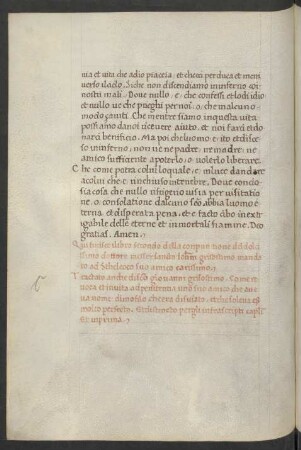 uia et uita che adio piaccia, et cheui perduca et meni
uerso ilcielo, Siche non discendiamo inninferno coi
nostri mali. Doue nullo e che confessi et lodi idio
et nullo ue che prieghi per noi o che maleuno
modo ci aiuti. Che mentre siamo inquesta uita
possiamo da noi riceuere aiuto, et noi fare idio
narci beneficio. Ma poi che luomo e ito et disceso
inninferno, non ne padre, ne madre, ne
amico sufficiente a poterlo, o uolerlo liberare.
Che come potra colui loquale e in luce dandare
a colui che e rinchiuso in tenebre, Doue concio
sia cosa che nullo rifrigerio ui sia per uisitatio
ne, o consolatione dalcuno, seno abbia luomo e
terna, et disperata pena, et che facto cibo inexti
ghuibile delle eterne et inmortali fiamme. Deo
gratias. Amen.
Qui finisce libro secondo della conpuntione del dolci
ssimo doctore messer sancto Iohanni grisostimo, mando
to ad Stheleco suo amico carissimo.
trattato di sancto giouanni grisostimo. Come re
uoca et inuita ad penitentia uno suo amico che aue
ua nome dimofilo che era disuiato,
molto perfecto,